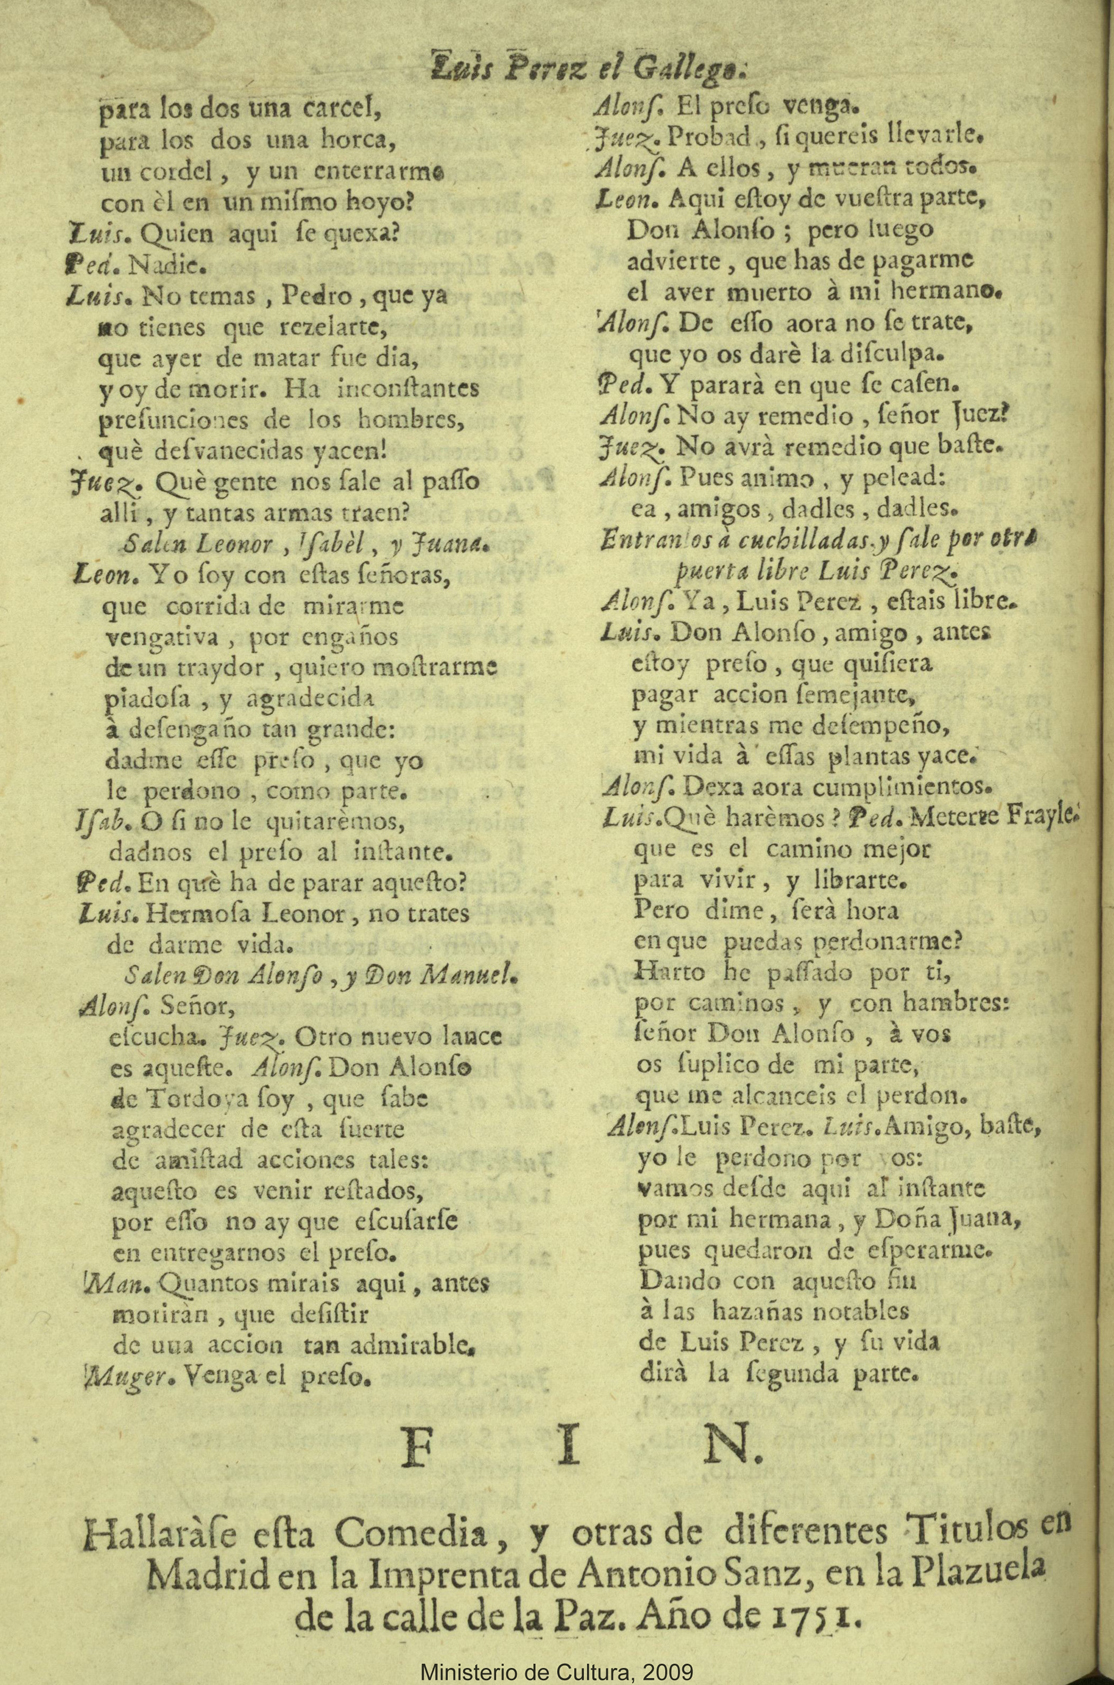 Luis Perez el Gallego.
para los dos una carcel,
para los dos una horca,
un cordel, y un enterrarme
con èl en un miſmo hoyo?
Luis. Quien aqui ſe quexa?
Ped. Nadie.
Luis. No temas, Pedro, que ya
no tienes que rezelarte,
que ayer de matar fue dia,
y oy de morir. Ha inconſtantes
preſunciones de los hombres,
què deſvanecidas yacen!
Juez. Què gente nos ſale al paſſo
alli, y tantas armas traen?
Salen Leonor, Iſabèl, y Juana.
Leon. Yo ſoy con eſtas ſeñoras,
que corrida de mirarme
vengativa, por engaños
de un traydor, quiero moſtrarme
piadoſa, y agradecida
à deſengaño tan grande:
dadme eſſe preſo, que yo
le perdono, como parte.
Iſab. O ſi no le quitarèmos,
dadnos el preſo al inſtante.
Ped. En què ha de parar aqueſto?
Luis. Hermoſa Leonor, no trates
de darme vida.
Salen Don Alonſo, y Don Manuel.
Alonſ. Señor,
eſcucha. Juez. Otro nuevo lance
es aqueſte. Alonſ. Don Alonſo
de Tordoya ſoy, que ſabe
agradecer de eſta ſuerte
de amiſtad acciones tales:
aqueſto es venir reſtados,
por eſſo no ay que eſcuſarſe
en entregarnos el preſo.
Man. Quantos mirais aqui, antes
moriràn, que deſiſtir
de una accion tan admirable.
Muger. Venga el preſo.
Alonſ. El preſo venga.
Juez. Probad, ſi quereis llevarle.
Alonſ. A ellos, y mueran todos.
Leon. Aqui eſtoy de vueſtra parte,
Don Alonſo; pero luego
advierte, que has de pagarme
el aver muerto à mi hermano.
Alonſ. De eſſo aora no ſe trate,
que yo os darè la diſculpa.
Ped. Y pararà en que ſe caſen.
Alonſ. No ay remedio, ſeñor Juez?
Juez. No avrà remedio que baſte.
Alonſ. Pues animo, y pelead:
ea, amigos, dadles, dadles.
Entranſos à cuchilladas, y ſale por otra
puerta libre Luis Perez.
Alonſ. Ya, Luis Perez, eſtais libre.
Luis. Don Alonſo, amigo, antes
eſtoy preſo, que quiſiera
pagar accion ſemejante,
y mientras me deſempeño,
mi vida à eſſas plantas yace.
Alonſ. Dexa aora cumplimientos.
Luis. Què harèmos? Ped. Meterte Frayle,
que es el camino mejor
para vivir, y librarte.
Pero dime, ſerà hora
en que puedas perdonarme?
Harto he paſſado por ti,
por caminos, y con hambres:
ſeñor Don Alonſo, à vos
os ſuplico de mi parte,
que me alcanceis el perdon.
Alonſ. Luis Perez. Luis. Amigo, baſte,
yo le perdono por vos:
vamos deſde aqui al inſtante
por mi hermana, y Doña Juana,
pues quedaron de eſperarme.
Dando con aqueſto fin
à las hazañas notables
de Luis Perez, y ſu vida
dirà la ſegunda parte.
F I N.
Hallaràſe eſta Comedia, y otras de diferentes Titulos en
Madrid en la Imprenta de Antonio Sanz, en la Plazuela
de la calle de la Paz. Año de 1751.
Ministerio de Cultura, 2009